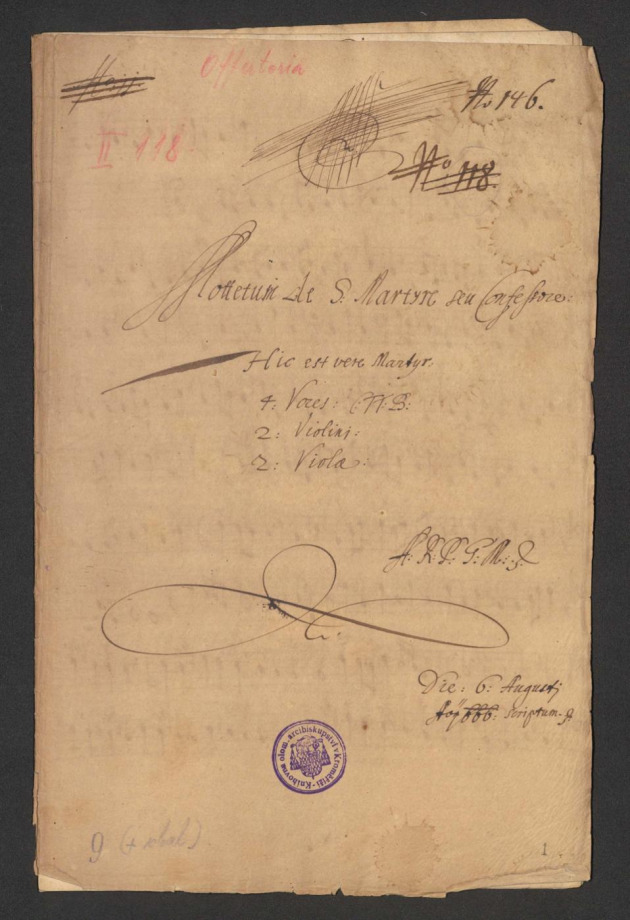 Offertoria
No 146.
II 118
No 118.
Mottetum de S. Martyre seu Confessore:
Hic est vere Martyr.
4: Voces: C.A.T.B:
2: Violini:
2: Violæ:
Die: 6: Augusti
666: scriptum
Knihovna olom. arcibiskupství v Kroměříži
9 (+ obal)
1